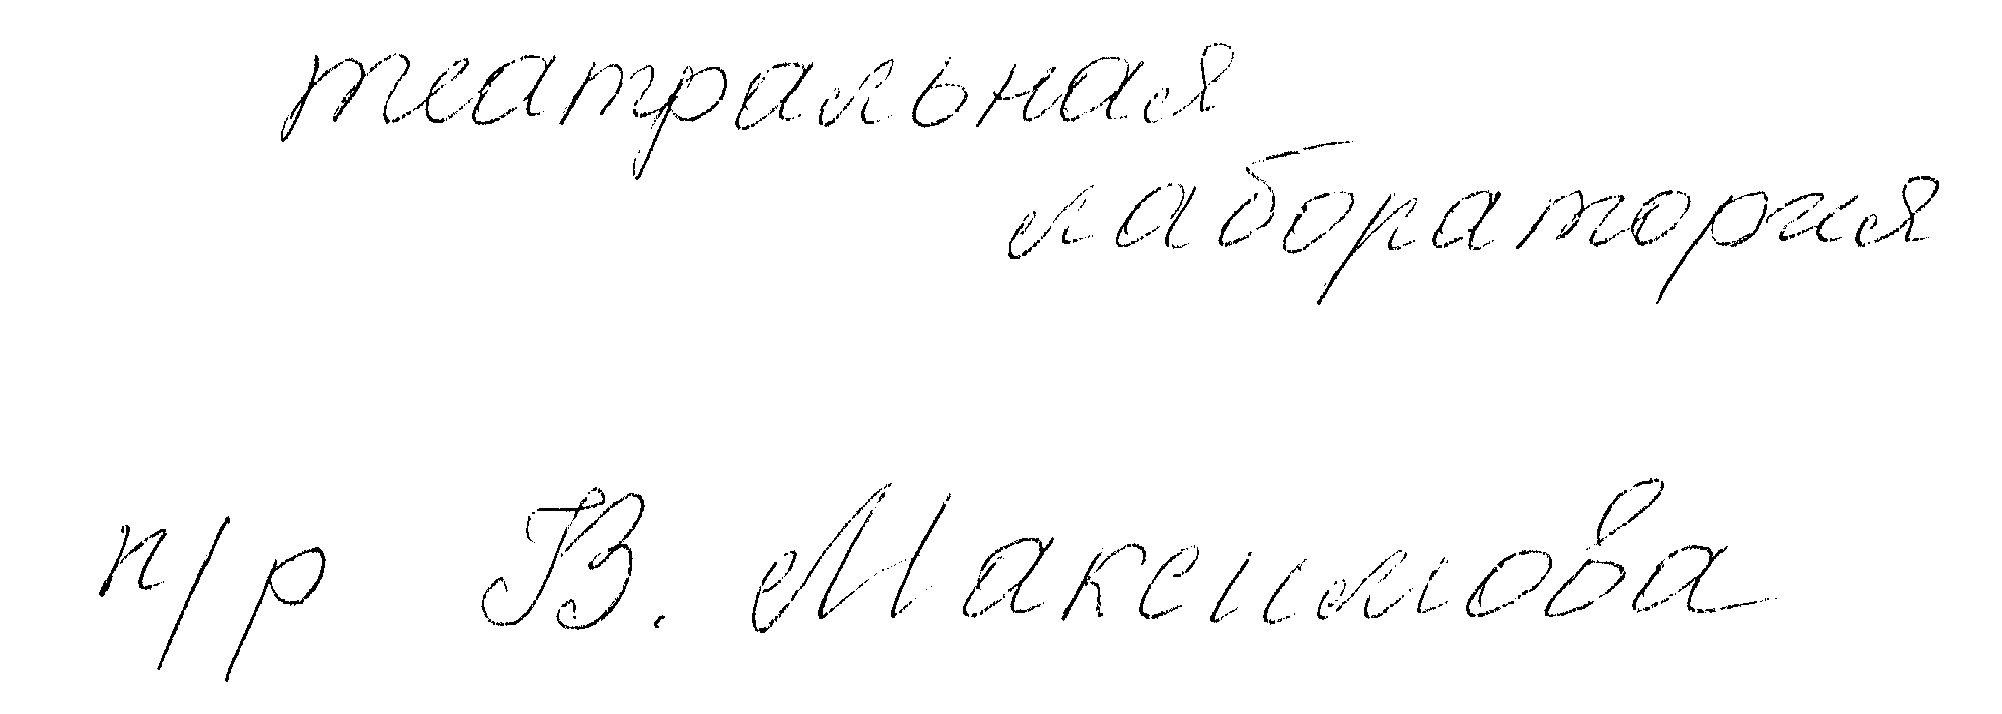 театральная
лаборатория
п/р В. Максимова